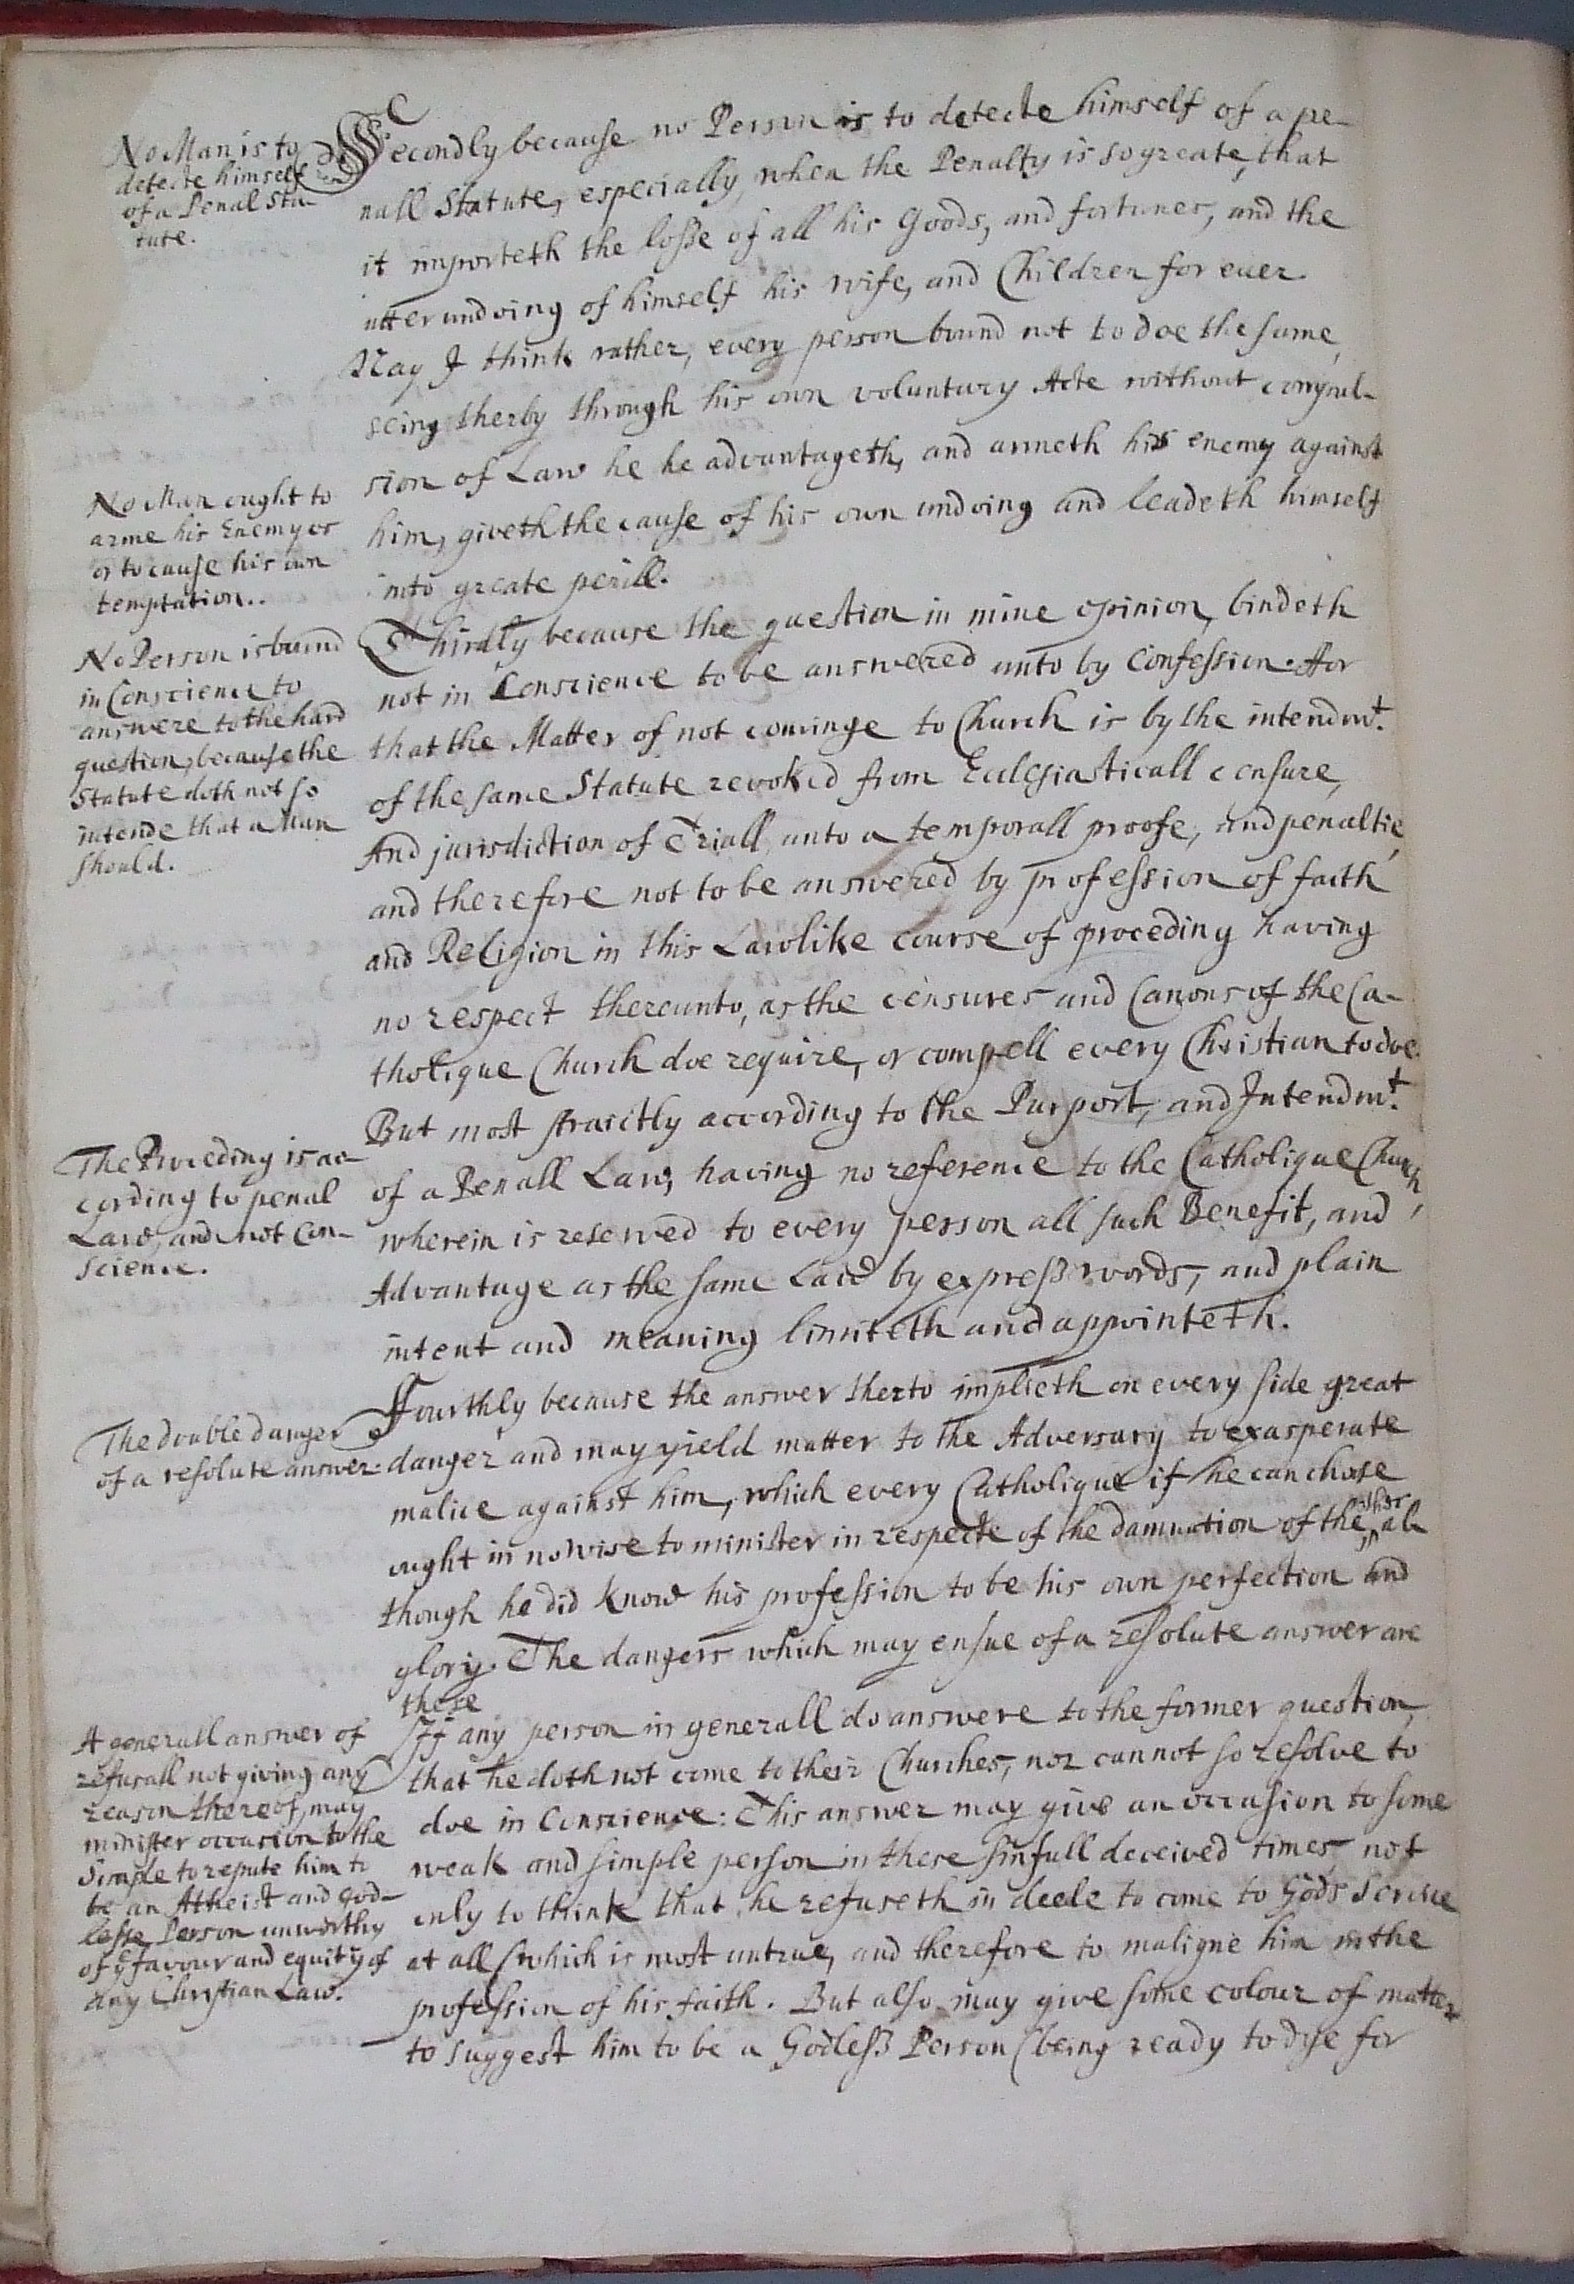 No Man is to
detecte himself
of a Penal Sta-
tute.
Secondly because no Person is to detecte himself of a pe-
nall Statute, especially, when the Penalty is so greate, that
it importeth the losse of all his Goods, and fortunes, and the
utter undoing of himself his wife, and Children for euer.
Nay I think rather, every person bound not to doe the same,
seing therby through his own voluntary Acte without compul-
sion of Law he he advantageth, and armeth his enemy against
him, giveth the cause of his own undoing and leadeth himself
into greate perill.
No Man ought to
arme his Enemy or
or to cause his own
temptation..
Thirdly because the question in mine opinion, bindeth
not in Conscience to be answered unto by Confession. for
that the Matter of not cominge to Church is by the intendmt.
of the same Statute revoked from Ecclesiasticall censure,
And jurisdiction of Triall unto a temporall proofe, and penaltie,
and therefore not to be answered by profession of faith
and Religion in this Lawlike course of proceding having
no respect thereunto, as the censures and Canons of the Ca-
tholique Church doe require, or compell every Christian to doe.
But most straictly according to the Purport, and Intendmt.
of a Penall Law, having no reference to the Catholique Church,
wherein is reserved to every person all such Benefit, and
Advantage as the same Law by express words, and plain
intent and meaning limiteth and appointeth.
No Person is bound
in Conscience to
answere to the hard
question, because the
Statute doth not so
intende that a Man
should.
The Proceding is ac-
cording to penal
Law, and not Con-
science.
Fourthly because the answer therto implieth on every side great
danger and may yield matter to the Adversary to exasperate
malice against him, which every Catholique if he can chose
ought in no wise to minister in respecte of the damnation of the other, al-
though he did know his profession to be his own perfection and
glory. The dangers which may ensue of a resolute answer are
these
The double danger
of a resolute answer.
If any person in generall do answere to the former question,
that he doth not come to their Churches, nor cannot so resolve to
doe in Conscience: This answer may give an occasion to some
weak and simple person in these sinfull deceived times not
only to think that he refuseth in deede to come to Gods Service
at all (which is most untrue, and therefore to maligne him in the
profession of his faith. But also may give some colour of matter
to suggest him to be a Godless Person (being ready to dye for
A generall answer of
refusall not giving any
reason thereof, may
minister occasion to the
Simple to repute him to
be an Atheist and god-
lesse Person unworthy
of ye favour and equity of
any Christian Law.